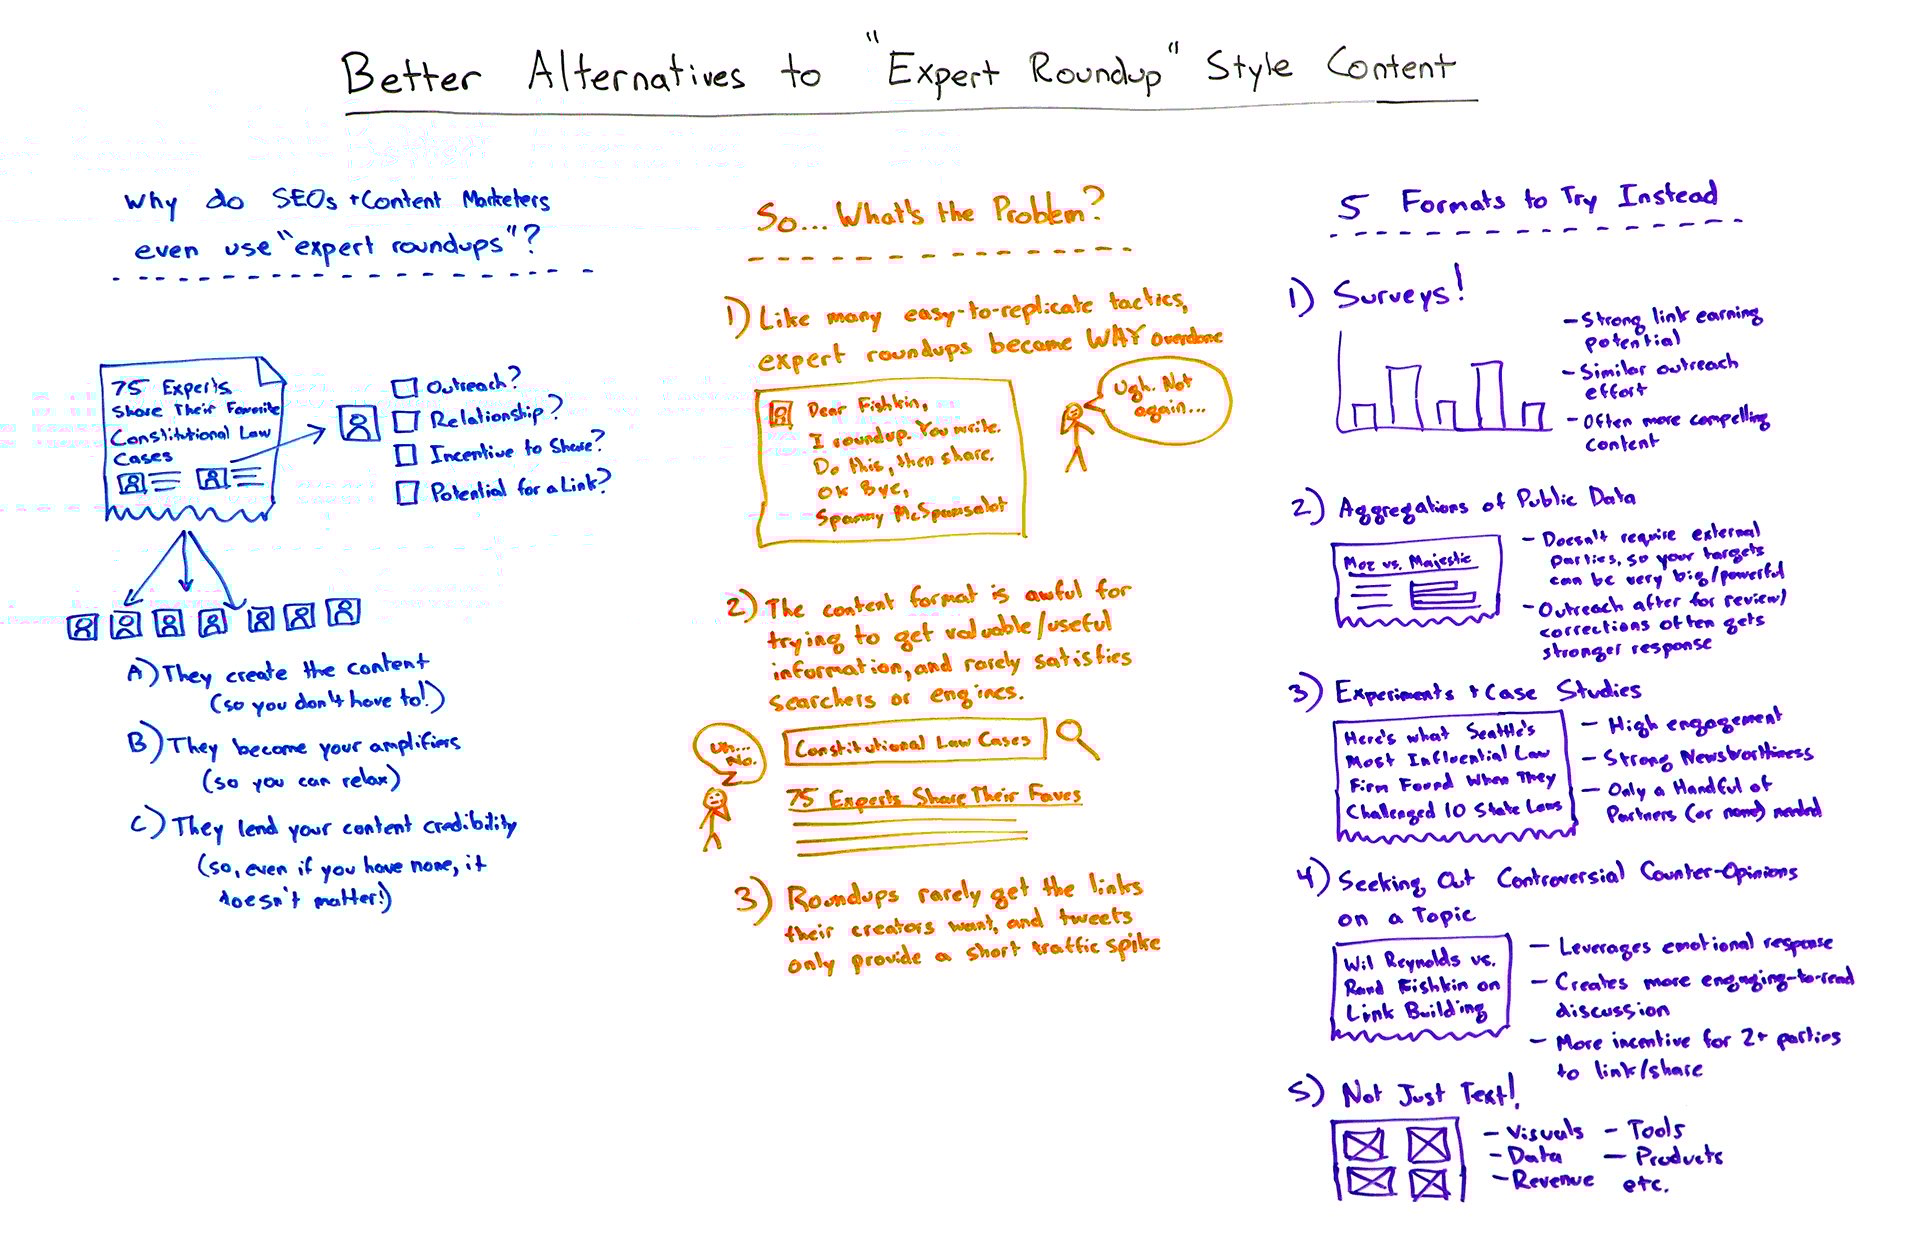 Better Alternatives to "Expert Roundup" Style Content
Why do SEOs + Content Marketers
even use "expert roundups"?
75 Experts
Share Their Favorite
Constitutional Law
Cases
Outreach?
Relationship?
Incentive to Share?
Potential for a Link?
A) They create the content
(so you don't have to!)
B) They become your amplifiers
(so you can relax)
C) They lend your content credibility
(so, even if you have none, it
doesn't matter!)
So... What's the Problem?
1) Like many easy-to-replicate tactics,
expert roundups became WAY overdone
Dear Fishkin,
I roundup. You write.
Do this, then share.
OK Bye,
Spammy McSpamsalot
Ugh. Not
again...
2) The content format is awful for
trying to get valuable/useful
information, and rarely satisfies
searchers or engines.
Uh...
No.
Constitutional Law Cases
75 Experts Share Their Faves
3) Roundups rarely get the links
their creators want, and tweets
only provide a short traffic spike
5 Formats to Try Instead
1) Surveys!
- Strong link earning
potential
- Similar outreach
effort
- Often more compelling
content
2) Aggregations of Public Data
Moz vs. Majestic
- Doesn't require external
parties, so your targets
can be very big/powerful
- Outreach after for review/
corrections often gets
stronger response
3) Experiments + Case Studies
Here's what Seattle's
Most Influential Law
Firm Found When They
Challenged 10 State Laws
- High engagement
- Strong Newsworthiness
- Only a Handful of
Partners (or none) needed
4) Seeking Out Controversial Counter-Opinions
on a Topic
Wil Reynolds vs.
Rand Fishkin on
Link Building
- Leverages emotional response
- Creates more engaging-to-read
discussion
- More incentive for 2+ parties
to link/share
5) Not Just Text!
- Visuals - Tools
- Data - Products
- Revenue etc.